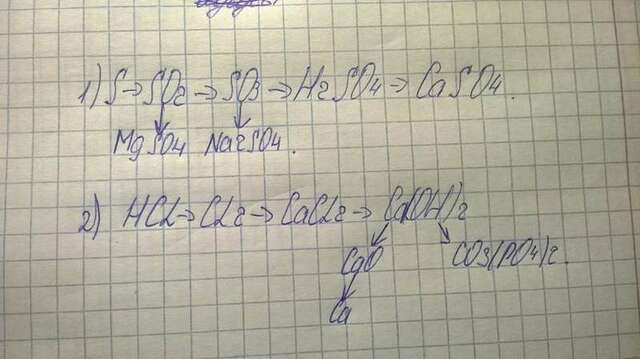 1) S → SO2 → SO3 → H2SO4 → CaSO4.
MgSO4 Na2SO4.
2) HCl → Cl2 → CaCl2 → Ca(OH)2
CaO CO3(PO4)2.
Ca